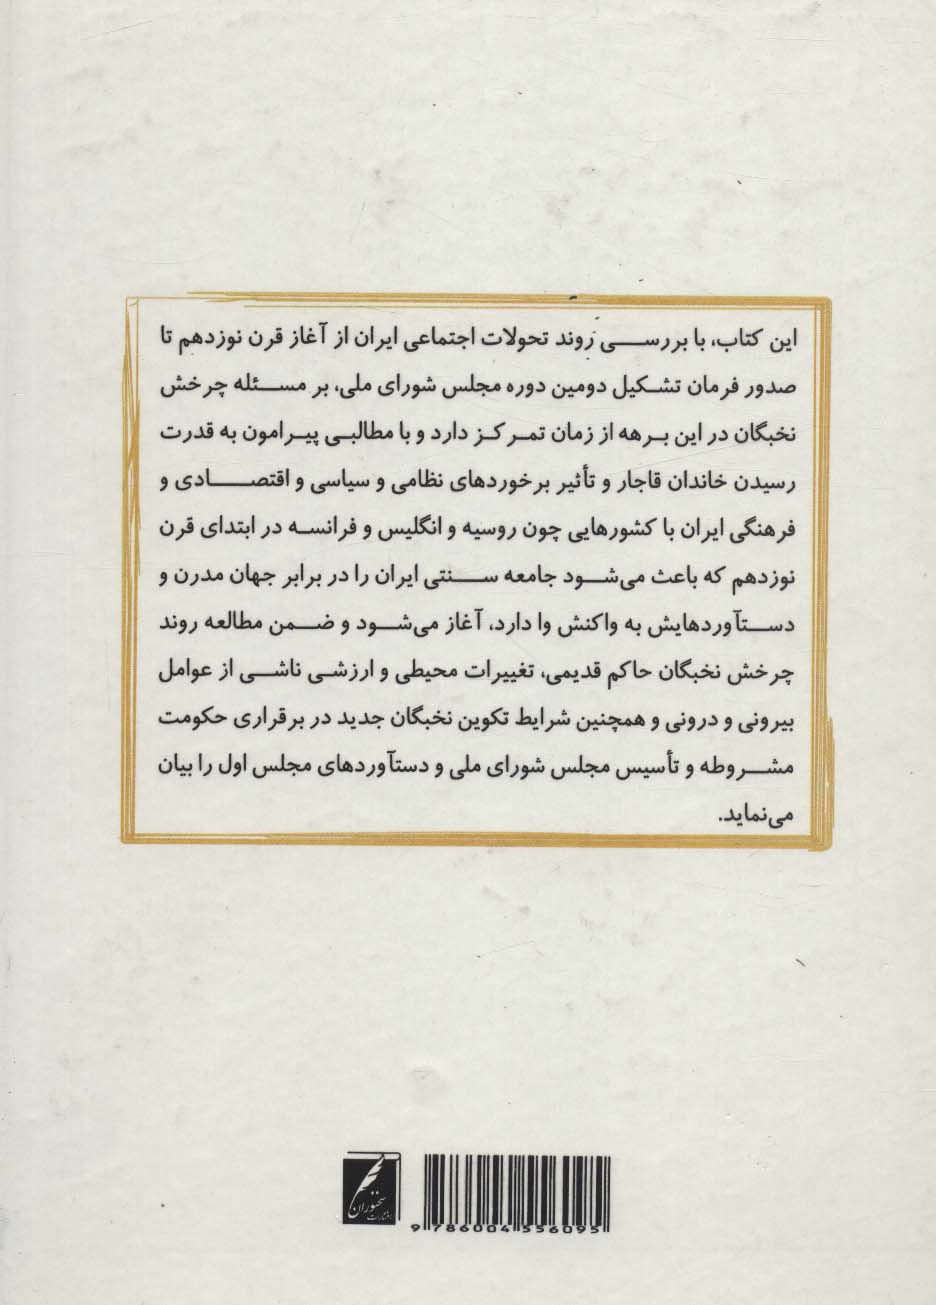 این کتاب، با بررسی روند تحولات اجتماعی ایران از آغاز قرن نوزدهم تا
صدور فرمان تشکیل دومین دوره مجلس شورای ملی، بر مسئله چرخش
نخبگان در این برهه از زمان تمرکز دارد و با مطالبی پیرامون به قدرت
رسیدن خاندان قاجار و تأثیر برخوردهای نظامی و سیاسی و اقتصادی و
فرهنگی ایران با کشورهایی چون روسیه و انگلیس و فرانسه در ابتدای قرن
نوزدهم که باعث می‌شود جامعه سنتی ایران را در برابر جهان مدرن و
دستآوردهایش به واکنش وا دارد، آغاز می‌شود و ضمن مطالعه روند
چرخش نخبگان حاکم قدیمی، تغییرات محیطی و ارزشی ناشی از عوامل
بیرونی و درونی و همچنین شرایط تکوین نخبگان جدید در برقراری حکومت
مشروطه و تأسیس مجلس شورای ملی و دستآوردهای مجلس اول را بیان
می‌نماید.
انتشارات سخنوران
9 786004 556095